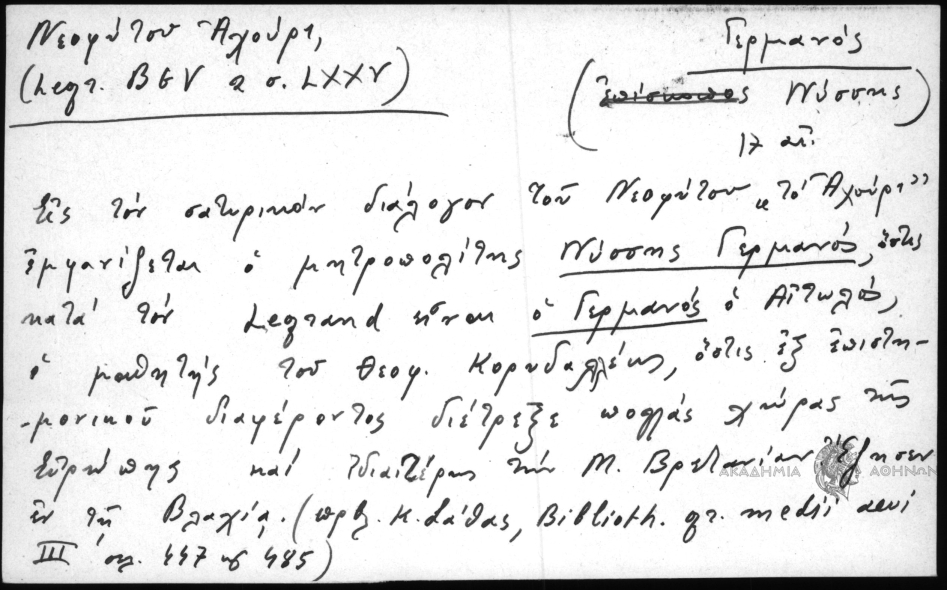 Νεοφύτου Ἀχούρι,
(Legr. BGV 2 σ. LXXV)
Γερμανός
(ἐπίσκοπος Νύσσης)
17 αἰ.
Εἰς τὸν σατυρικὸν διάλογον τοῦ Νεοφύτου «τὸ Ἀχούρι»
ἐμφανίζεται ὁ μητροπολίτης Νύσσης Γερμανός, ὅστις
κατὰ τὸν Legrand εἶναι ὁ Γερμανός ὁ Αἰτωλός,
ὁ μαθητής τοῦ Θεοφ. Κορυδαλλέως, ὅστις ἐξ ἐπιστη-
-μονικοῦ διαφέροντος διέτρεξε πολλάς χώρας τῆς
Εὐρώπης καί ἰδιαιτέρως τὴν Μ. Βρετανίαν. Ἔζησεν
ἐν τῇ Βλαχίᾳ. (πρβλ. Κ. Σάθας, Biblioth. gr. medii aevi
III σελ. 447 485)
ΑΚΑΔΗΜΙΑ ΑΘΗΝΩΝ